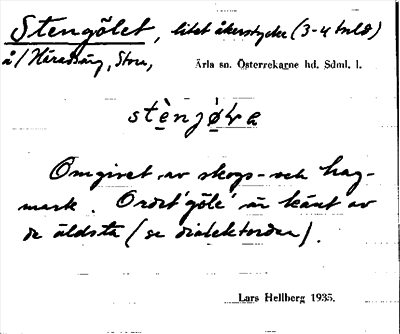 Stengölet, litet åkerstycke (3-4 tnld)
å/Häradsäng, Stora,
Ärla sn. Österrekarne hd. Sdml. l.
stèṇjö̀ɫɐ
Omgivet av skogs- och hag-
mark. Ordet 'göle' är känt av
de äldsta (se dialektorden).
Lars Hellberg 1935.